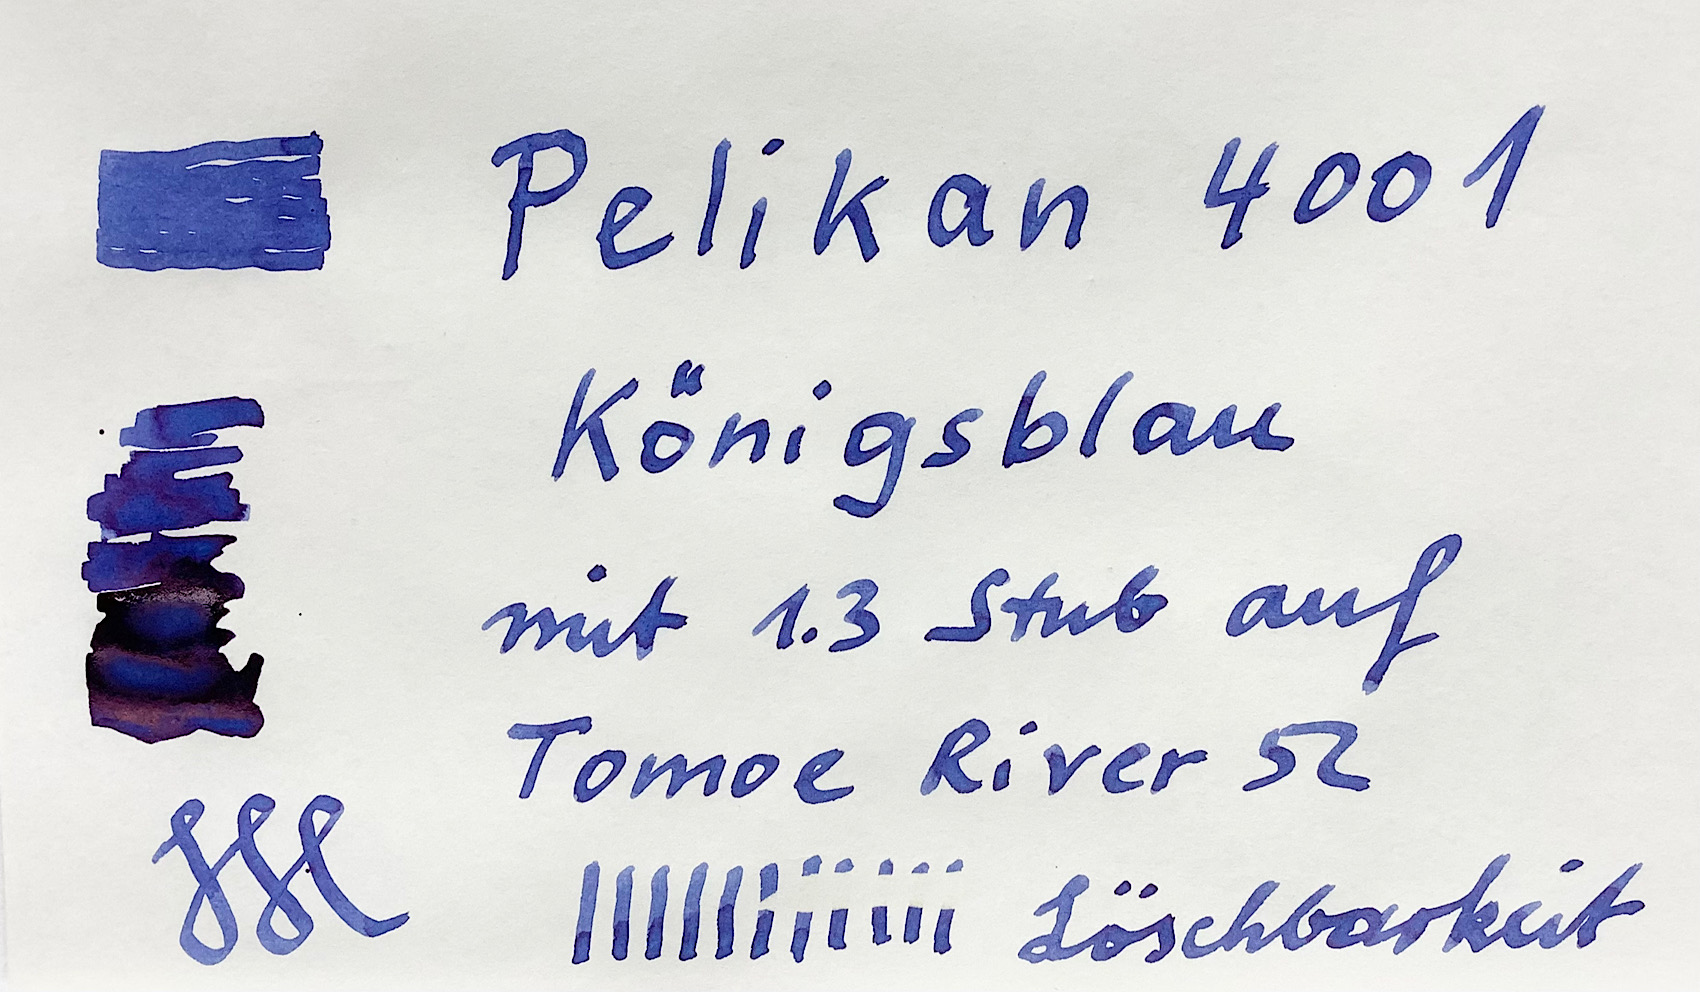 Pelikan 4001
Königsblau
mit 1.3 Stub auf
Tomoe River 52
Löschbarkeit